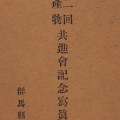 二回
産物
共進會記念寫眞
群馬縣